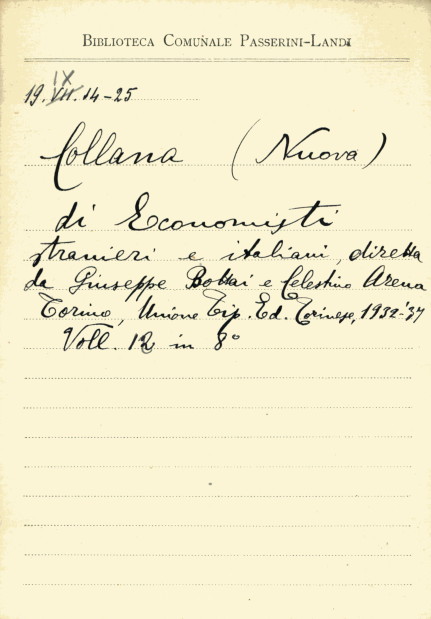 BIBLIOTECA COMUNALE PASSERINI-LANDI
IX
19.VII.14-25
Collana (Nuova)
di Economisti
stranieri e italiani, diretta
da Giuseppe Bottai e Celestino Arena
Torino, Unione Tip. Ed. Torinese, 1932-'37
Voll. 12 in 8°